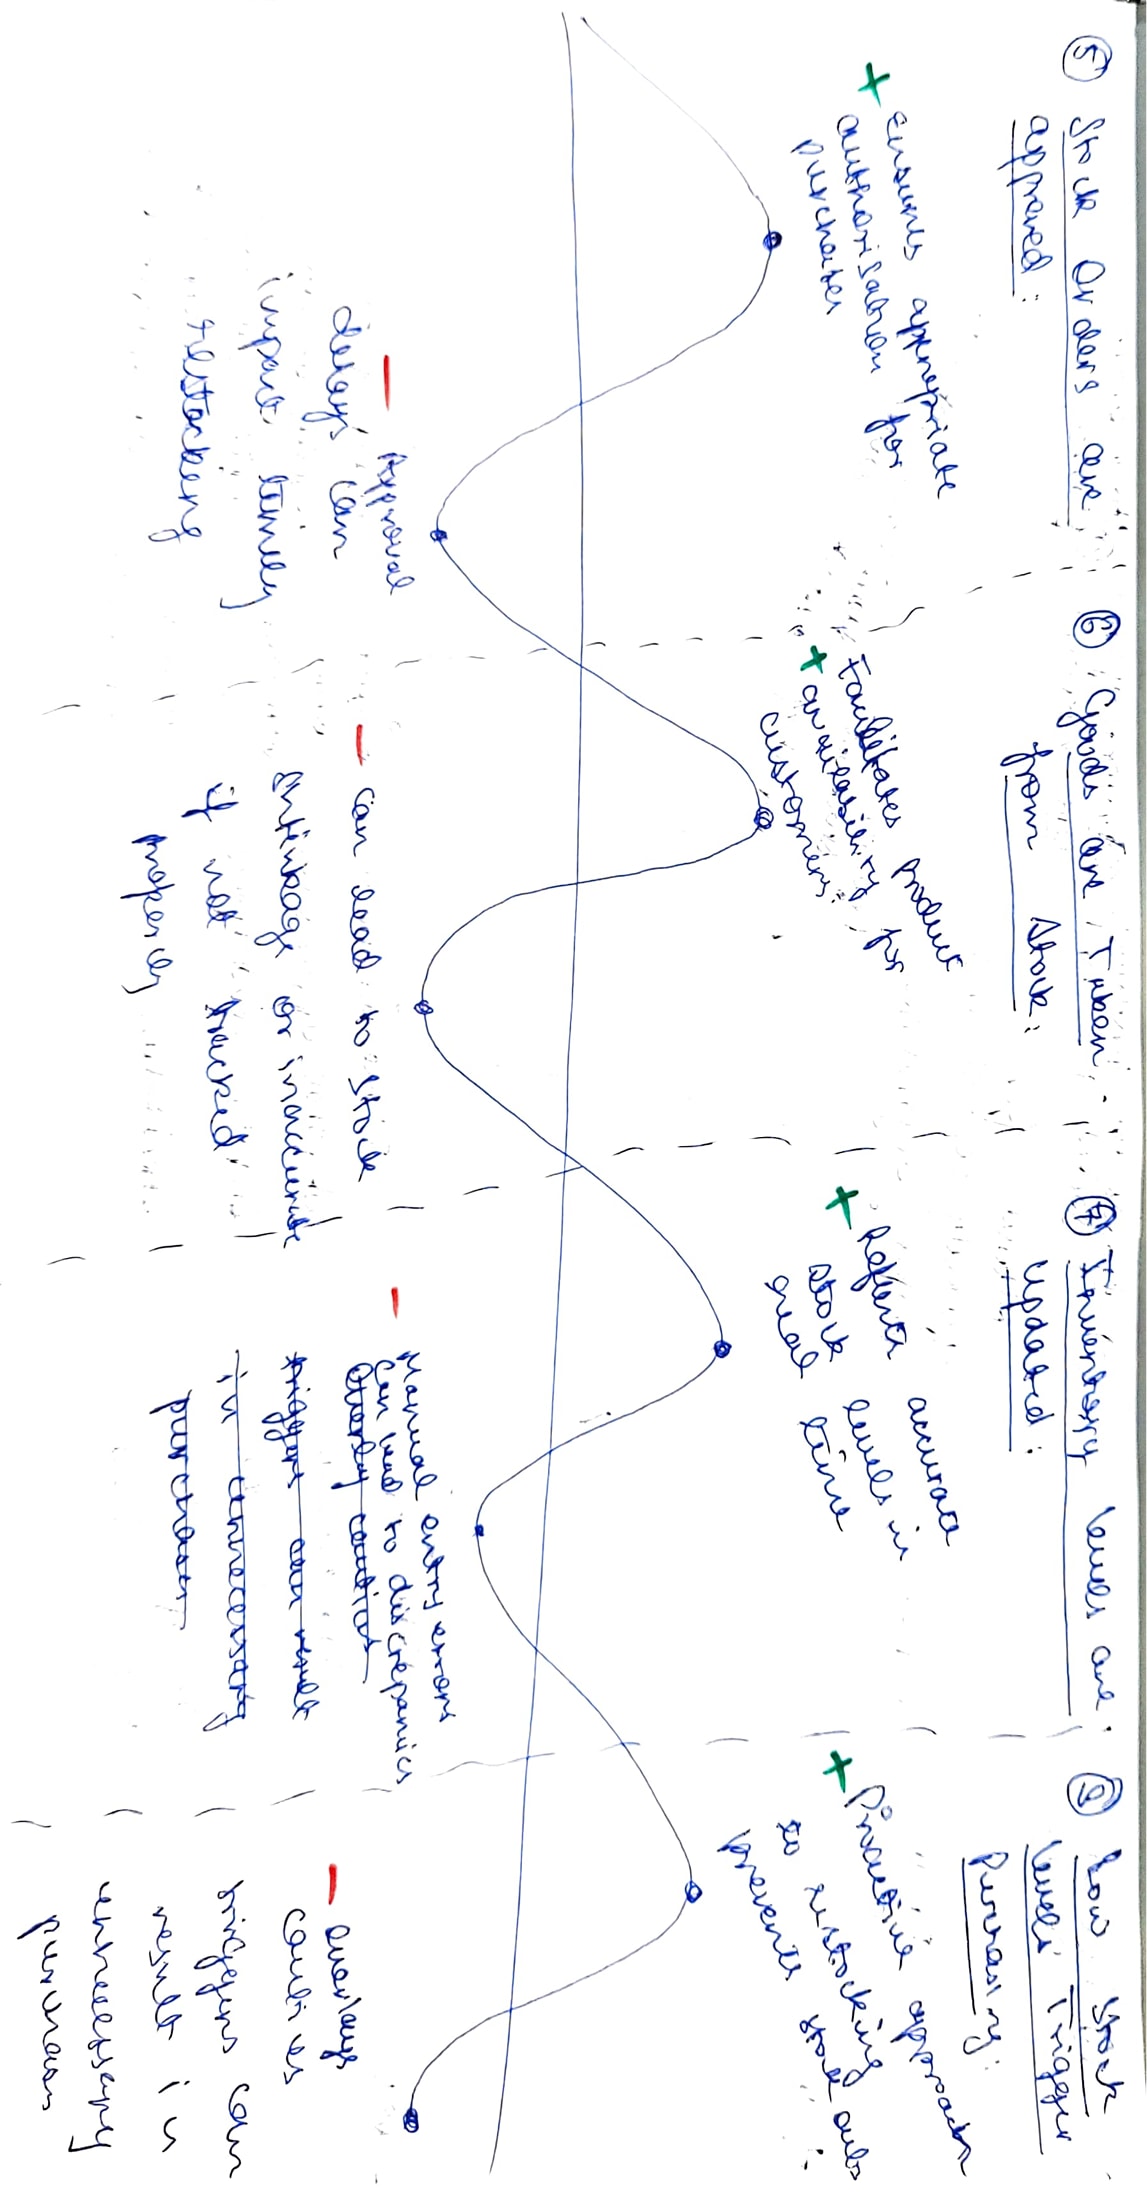 5 Stock Orders are
approved:
+ Ensures appropriate
authorisation for
purchases
- Approval
delays can
impact timely
restocking
6 Goods are Taken
from Stock:
Facilitates product
+ availability for
customers.
- can lead to stock
shrinkage or inaccurate
if not tracked
properly
7 Inventory levels are
updated:
+ Reflects accurate
stock levels in
real time
- Manual entry errors
can lead to discrepancies
Overly cautious
triggers can result
in unnecessary
purchases
8 Low Stock
levels Trigger
Purchasing:
+ Proactive approach
to restocking
prevents stock outs
- overlays
cautious
triggers can
result in
unnecessary
purchases